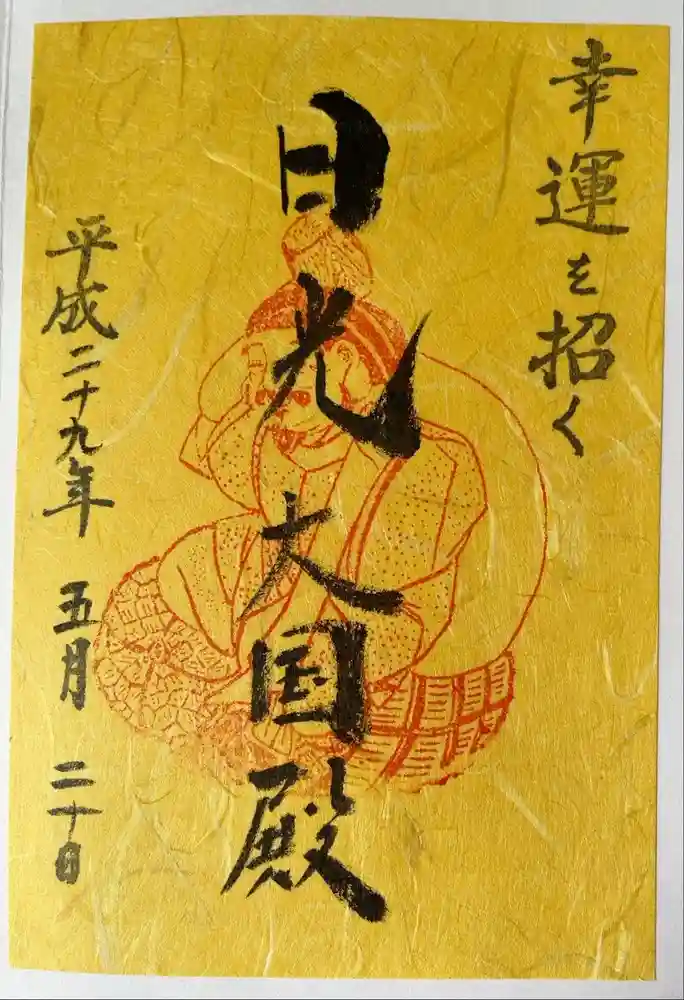 幸運を招く
日光大国殿
平成二十九年 五月 二十日